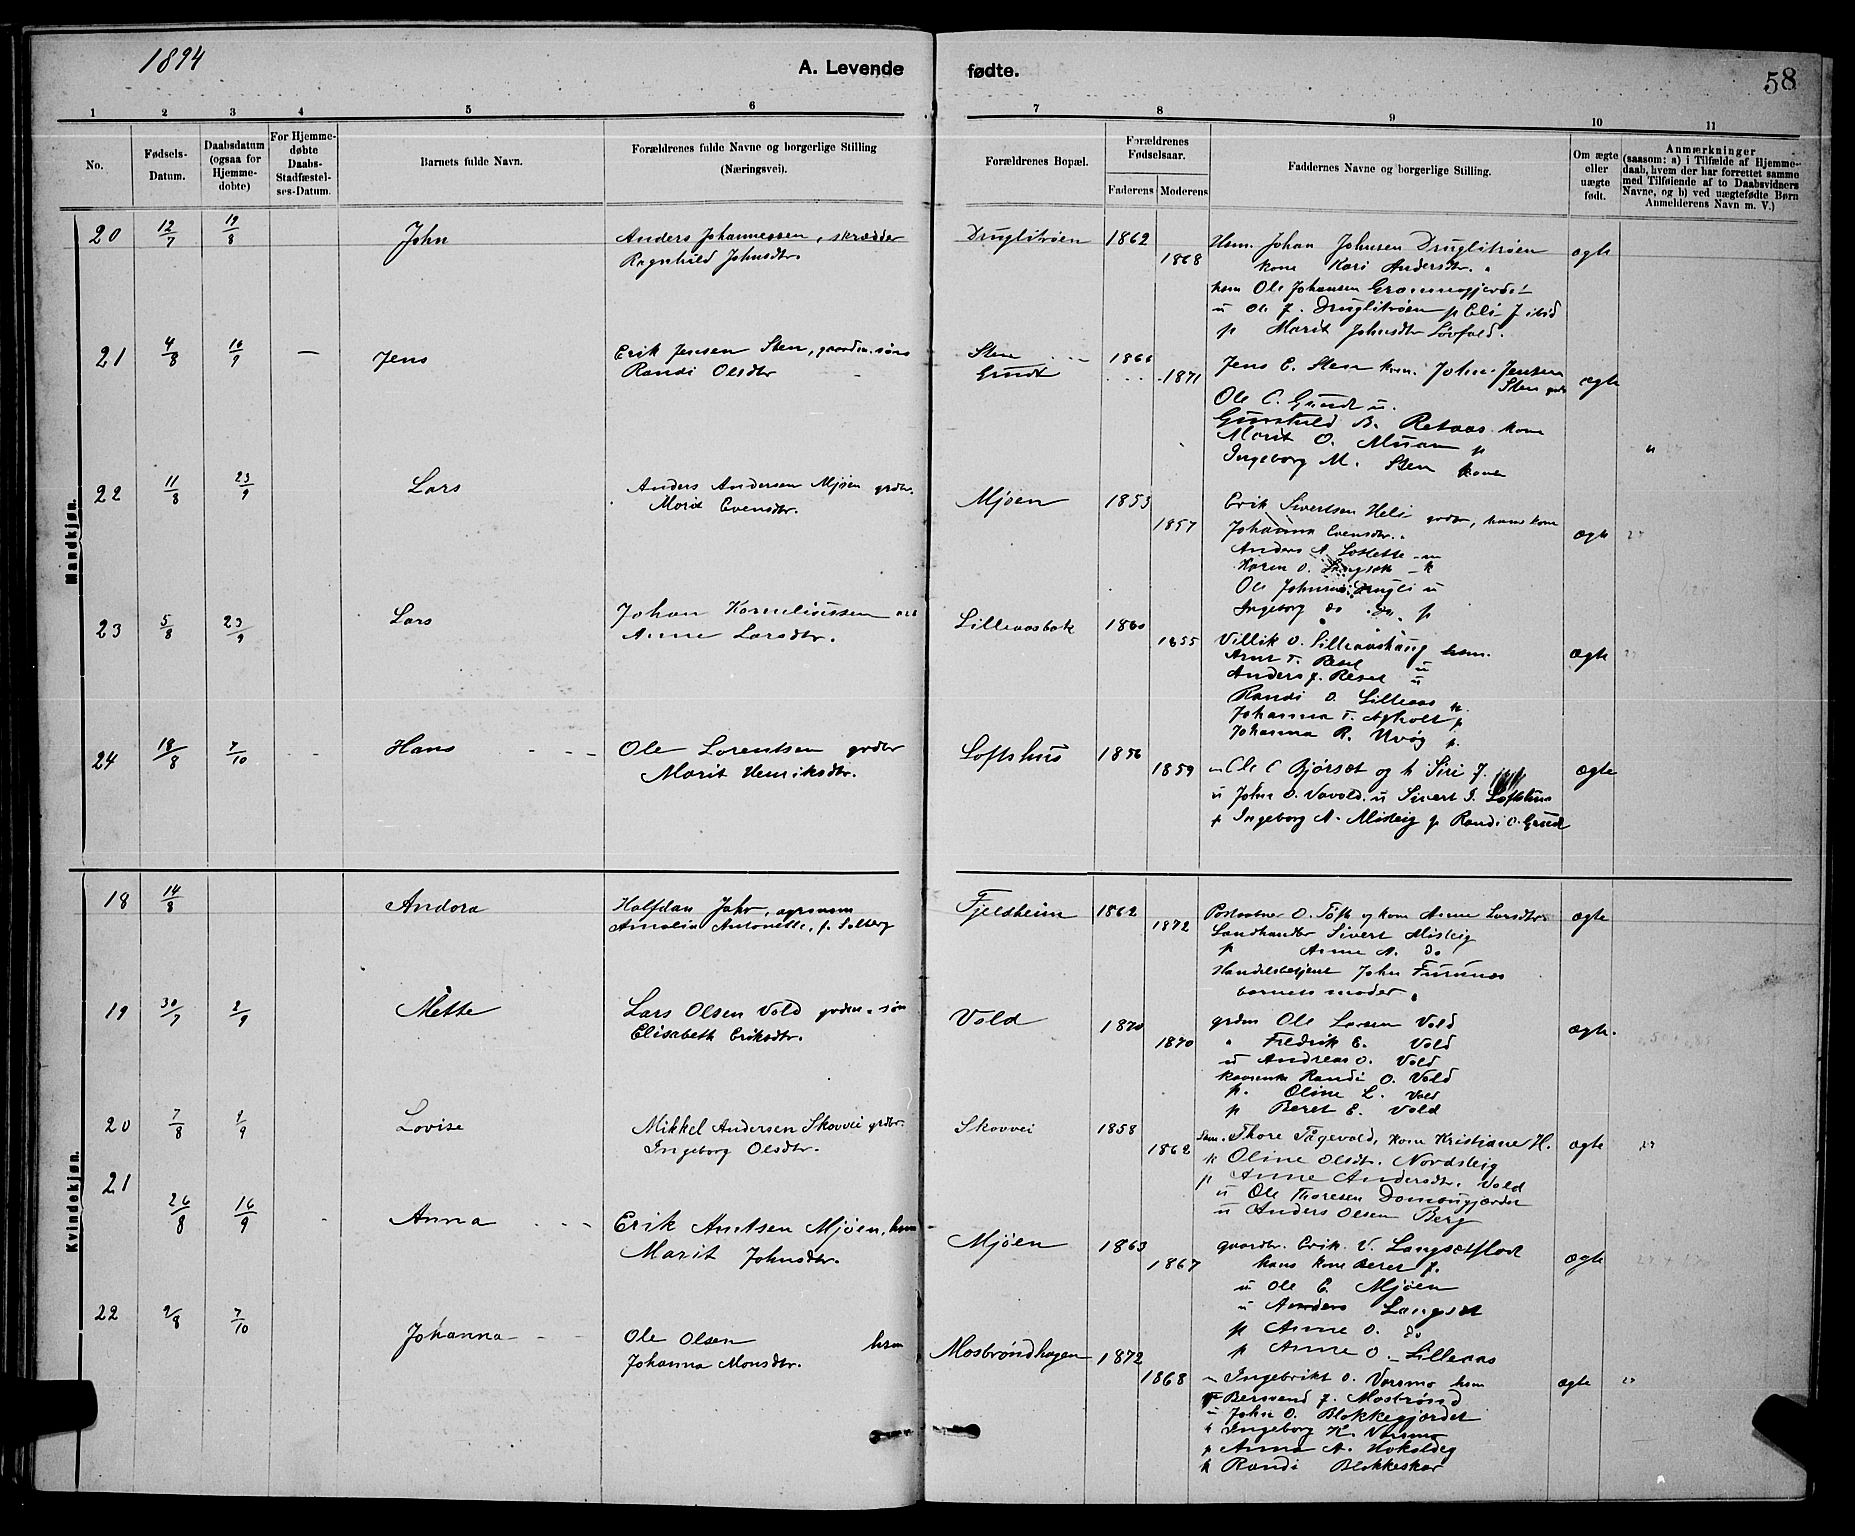 1894
A. Levende fødte.
58
1 2 3 4 5 6 7 8 9 10 11
No.
Fødsels-Datum.
Daabsdatum (ogsaa for Hjemme-døbte)
For Hjemme-døbte Daabs-Stadfæstel-ses-Datum.
Barnets fulde Navn.
Forældrenes fulde Navne og borgerlige Stilling (Næringsvei).
Forældrenes Bopæl.
Forældrenes Fødselsaar.
Faderens Moderens
Faddernes Navne og borgerlige Stilling.
Om ægte eller uægte født.
Anmærkninger
(saasom: a) i Tilfælde af Hjemme-
daab, hvem der har forrettet samme
med Tilføiende af to Daabsvidners
Navne, og b) ved uægtefødte Børn
Anmelderens Navn m. V.)
Mandkjøn.
20 12/7 19/8 John
Anders Johannessen, skrædder
Ragnhild Johnsdtr.
Druglitrøen 1862
1868
Hsm. Johan Johnsen Druglitrøen
kone Kari Andersdtr. "
hsm Ole Johansen
u Ole J. Druglitrøen p Eli J ibid
p Marit Johnsdtr Løvfald.
ægte
21 4/8 16/9 — Jens
Erik Jensen Sten, gaardm. søn
Randi Olsdtr
Sten
Grudt
1866
1871
Jens E. Sten kaar. John Jensen
Sten
Ole C. Grudt u.
Gunhild B. Retaas kone
Marit O. Muan p
Ingeborg M. Sten kone
ægte
"
22 11/8 23/9 Lars
Anders Andersen Mjøen grdbr.
Marit Evensdtr.
Mjøen 1853
1857
Erik Sivertsen Heli grdbr, hans kone
Johanna Evensdtr.
Anders A
Karen O. Langsæt k
Ole Johnsen Drugli u
Ingeborg do do p
ægte
23 5/8 23/9 Lars
Johan Korneliussen
Anne Larsdtr.
Lilleaasbak 1860
1855
Villik O. Lilleaashaug hsm.
Arnt T. Resel u
Anders J. Resel u
Randi O. Lilleaas p.
Johanna T. Asholt p
Johanna R. Uvøg p.
ægte
24 18/8 7/10 Hans
Ole Lorentsen grdbr
Marit Henriksdtr.
Loftshus 1856
1859
Ole C Bjørset og h Siri J.
u John O. Vavold. u Sivert I. Loftshus
p Ingeborg A. Misleig p Randi O. Grudt
ægte
Kvindekjøn.
18 14/8 Andora
Halfdan Jahr, agronom
Amalia Antonette, f. Solberg
Fjeldheim 1862
1872
Postaabner O. Tøft og kone Anne Larsdtr
Landhandler Sivert Misleig
p Anne A. do
Handelsbetjent John Furunes
barnets moder
ægte
19 30/7 2/9 Mette
Lars Olsen Vold grdm. søn
Elisabeth Eriksdtr.
Vold 1870
1870
grdm Ole Larsen Vold
" Fredrik E. Vold
u Andreas O. Vold
kaarenke Randi O. Vold
p. Oline L. Vold
p Beret E. Vold
ægte.
20 7/8 2/9 Lovise
Mikkel Andersen Skovvei grdbr.
Ingeborg Olsdtr.
Skovvei 1858
1862
Sam. Thore Tågevold, kone Kristiane H.
k Oline Olsdtr. Nordsleig
p Anne Andersdtr. Vold
u Ole Thoresen
u Anders Olsen Berg
ægte
21 26/8 16/9 Anna
Erik Arntsen Mjøen, hsm
Marit Johnsdtr.
Mjøen 1863
1867
gaardbr. Erik V. Langsetflod
hans kone Beret J.
u Ole E. Mjøen
u Anders Langset
p Anne O. do
p Anne O. Lilleaas
ægte
22 9/8 7/10 Johanna
Ole Olsen hsm
Johanna Monsdtr.
Mosbrøndhagen 1872
1868
Ingebrikt O. Varsmo hsm
Bersvend J. Mosbrønd
u John O. Blokkegjerdet
k Ingeborg K. Varsmo
p Anna A. Hokoldeg
k Randi Blokkeskar
ægte